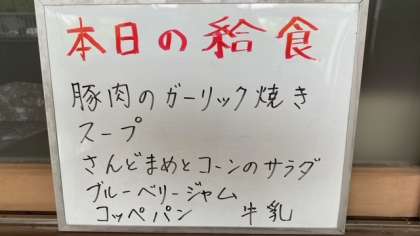 本日の給食
豚肉のガーリック焼き
スープ
さんどまめとコーンのサラダ
ブルーベリージャム
コッペパン 牛乳